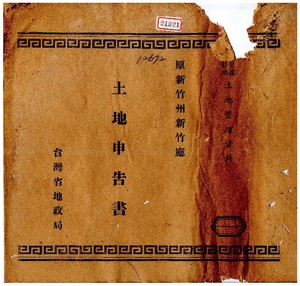 12672
土地整理資料
原新竹州新竹廳
土地申告書
台灣省地政局